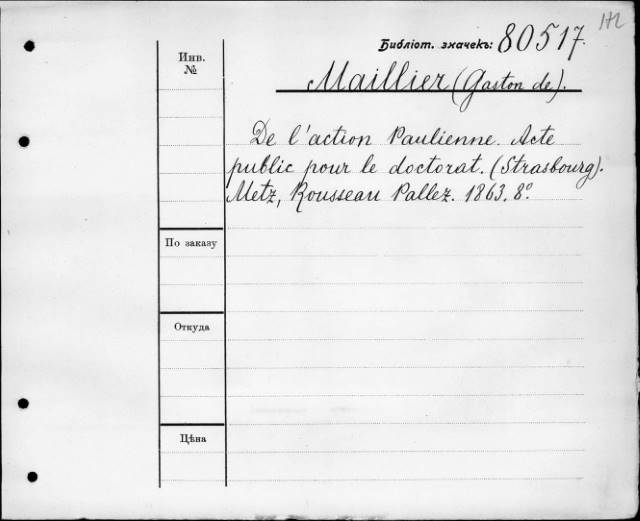 Библіот. значекъ: 80517.
Инв.
№
Maillier (Gaston de).
De l'action Paulienne. Acte
public pour le doctorat. (Strasbourg).
Metz, Rousseau Pallez. 1863. 8º.
По заказу
Откуда
Цѣна